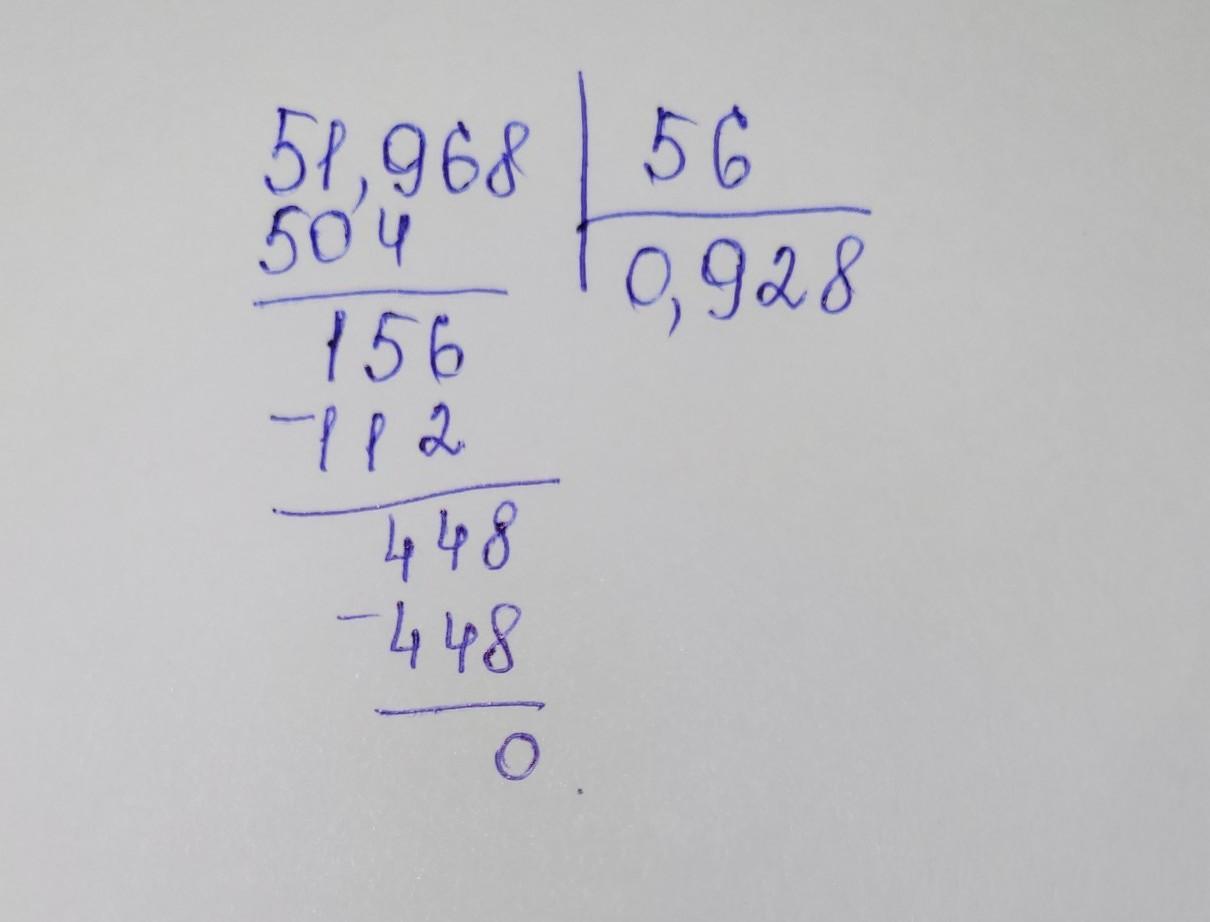 51,968 56
504 0,928
156
-112
448
-448
0